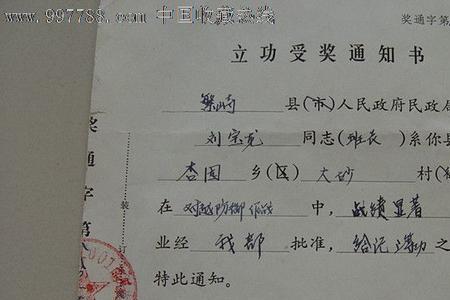 www.997788.com 中国收藏热线
奖通字第
立功受奖通知书
繁峙 县(市)人民政府民政局
刘宗龙 同志(班长)系你县
杏园 乡(区) 大砂 村(
在 对越防御作战 中, 战绩显著
业经 我部 批准, 给记三等功 之
特此通知。
奖通字第
装订